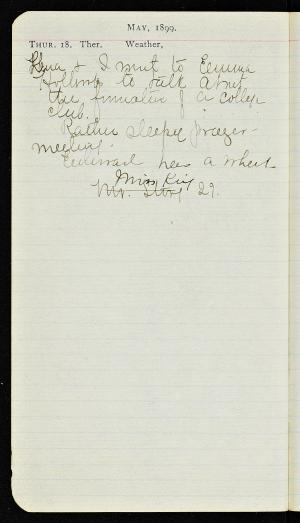 May, 1899.
Thur. 18. Ther. Weather,
Lena & I went to Emma
to talk about
the formation of a college
club.
Rather sleepy prayer-
meeting.
Edward has a wheel
Miss King
Mr. 29.